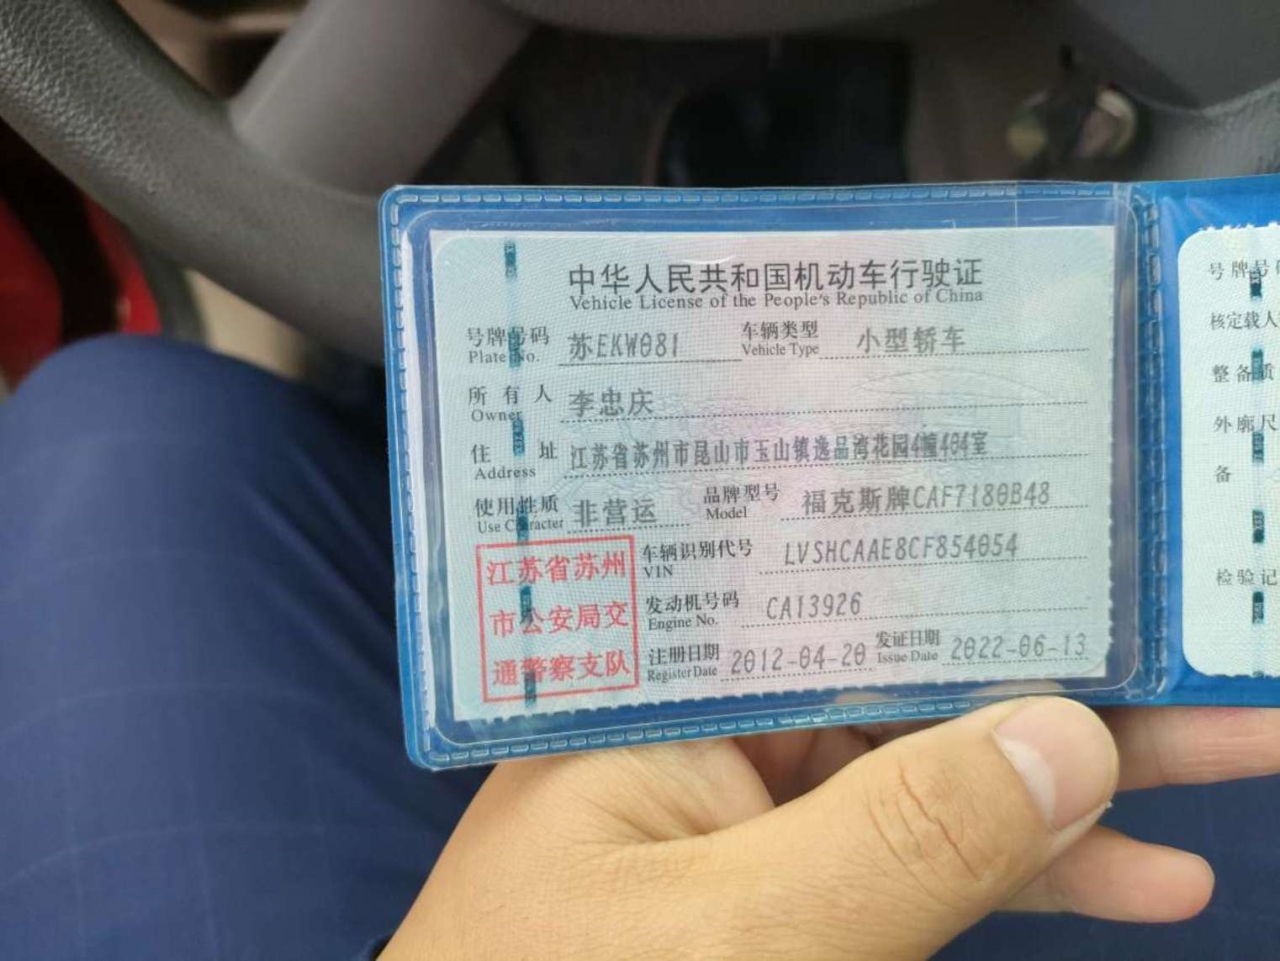 中华人民共和国机动车行驶证
Vehicle License of the People's Republic of China
号牌号码 苏EKW081 车辆类型 小型轿车
Plate No. Vehicle Type
所有人 李忠庆
Owner
住址 江苏省苏州市昆山市玉山镇逸品湾花园4幢404室
Address
使用性质 非营运 品牌型号 福克斯牌CAF7180B48
Use Character Model
江苏省苏州
市公安局交
通警察支队
车辆识别代号 LVSHCAAE8CF854054
VIN
发动机号码 CA13926
Engine No.
注册日期 2012-04-20 发证日期 2022-06-13
Register Date Issue Date
号牌号码
核定载人
整备质
外廓尺
备
检验记